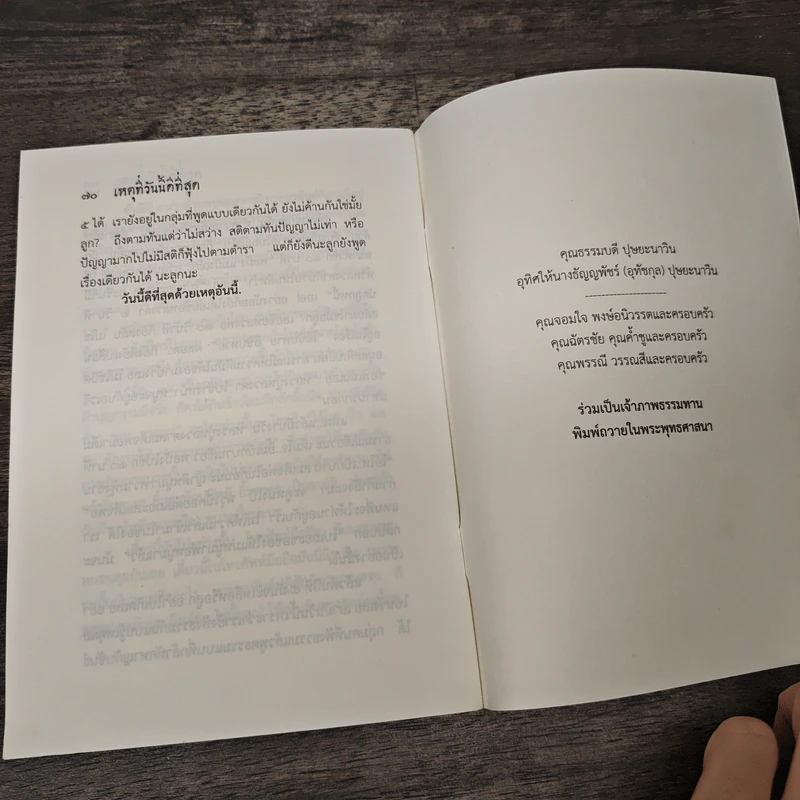 ๗๐ เหตุที่วันนี้ดีที่สุด
๕ ได้ เรายังอยู่ในกลุ่มที่พูดแบบเดียวกันได้ ยังไม่ค้านกันใช่มั้ย
ลูก? ถึงตามทันแต่ว่าไม่สว่าง สติตามทันปัญญาไม่เท่า หรือ
ปัญญามากไปไม่มีสติก็ฟุ้งไปตามตำรา แต่ก็ยังดีนะลูกยังพูด
เรื่องเดียวกันได้ นะลูกนะ
วันนี้ดีที่สุดด้วยเหตุอันนี้.
คุณธรรมบดี ปุษยะนาวิน
อุทิศให้นางธัญญพัชร์ (อุทัชกุล) ปุษยะนาวิน
คุณจอมใจ พงษ์อนิวรรตและครอบครัว
คุณฉัตรชัย คุณค้ำชูและครอบครัว
คุณพรรณี วรรณสีและครอบครัว
ร่วมเป็นเจ้าภาพธรรมทาน
พิมพ์ถวายในพระพุทธศาสนา